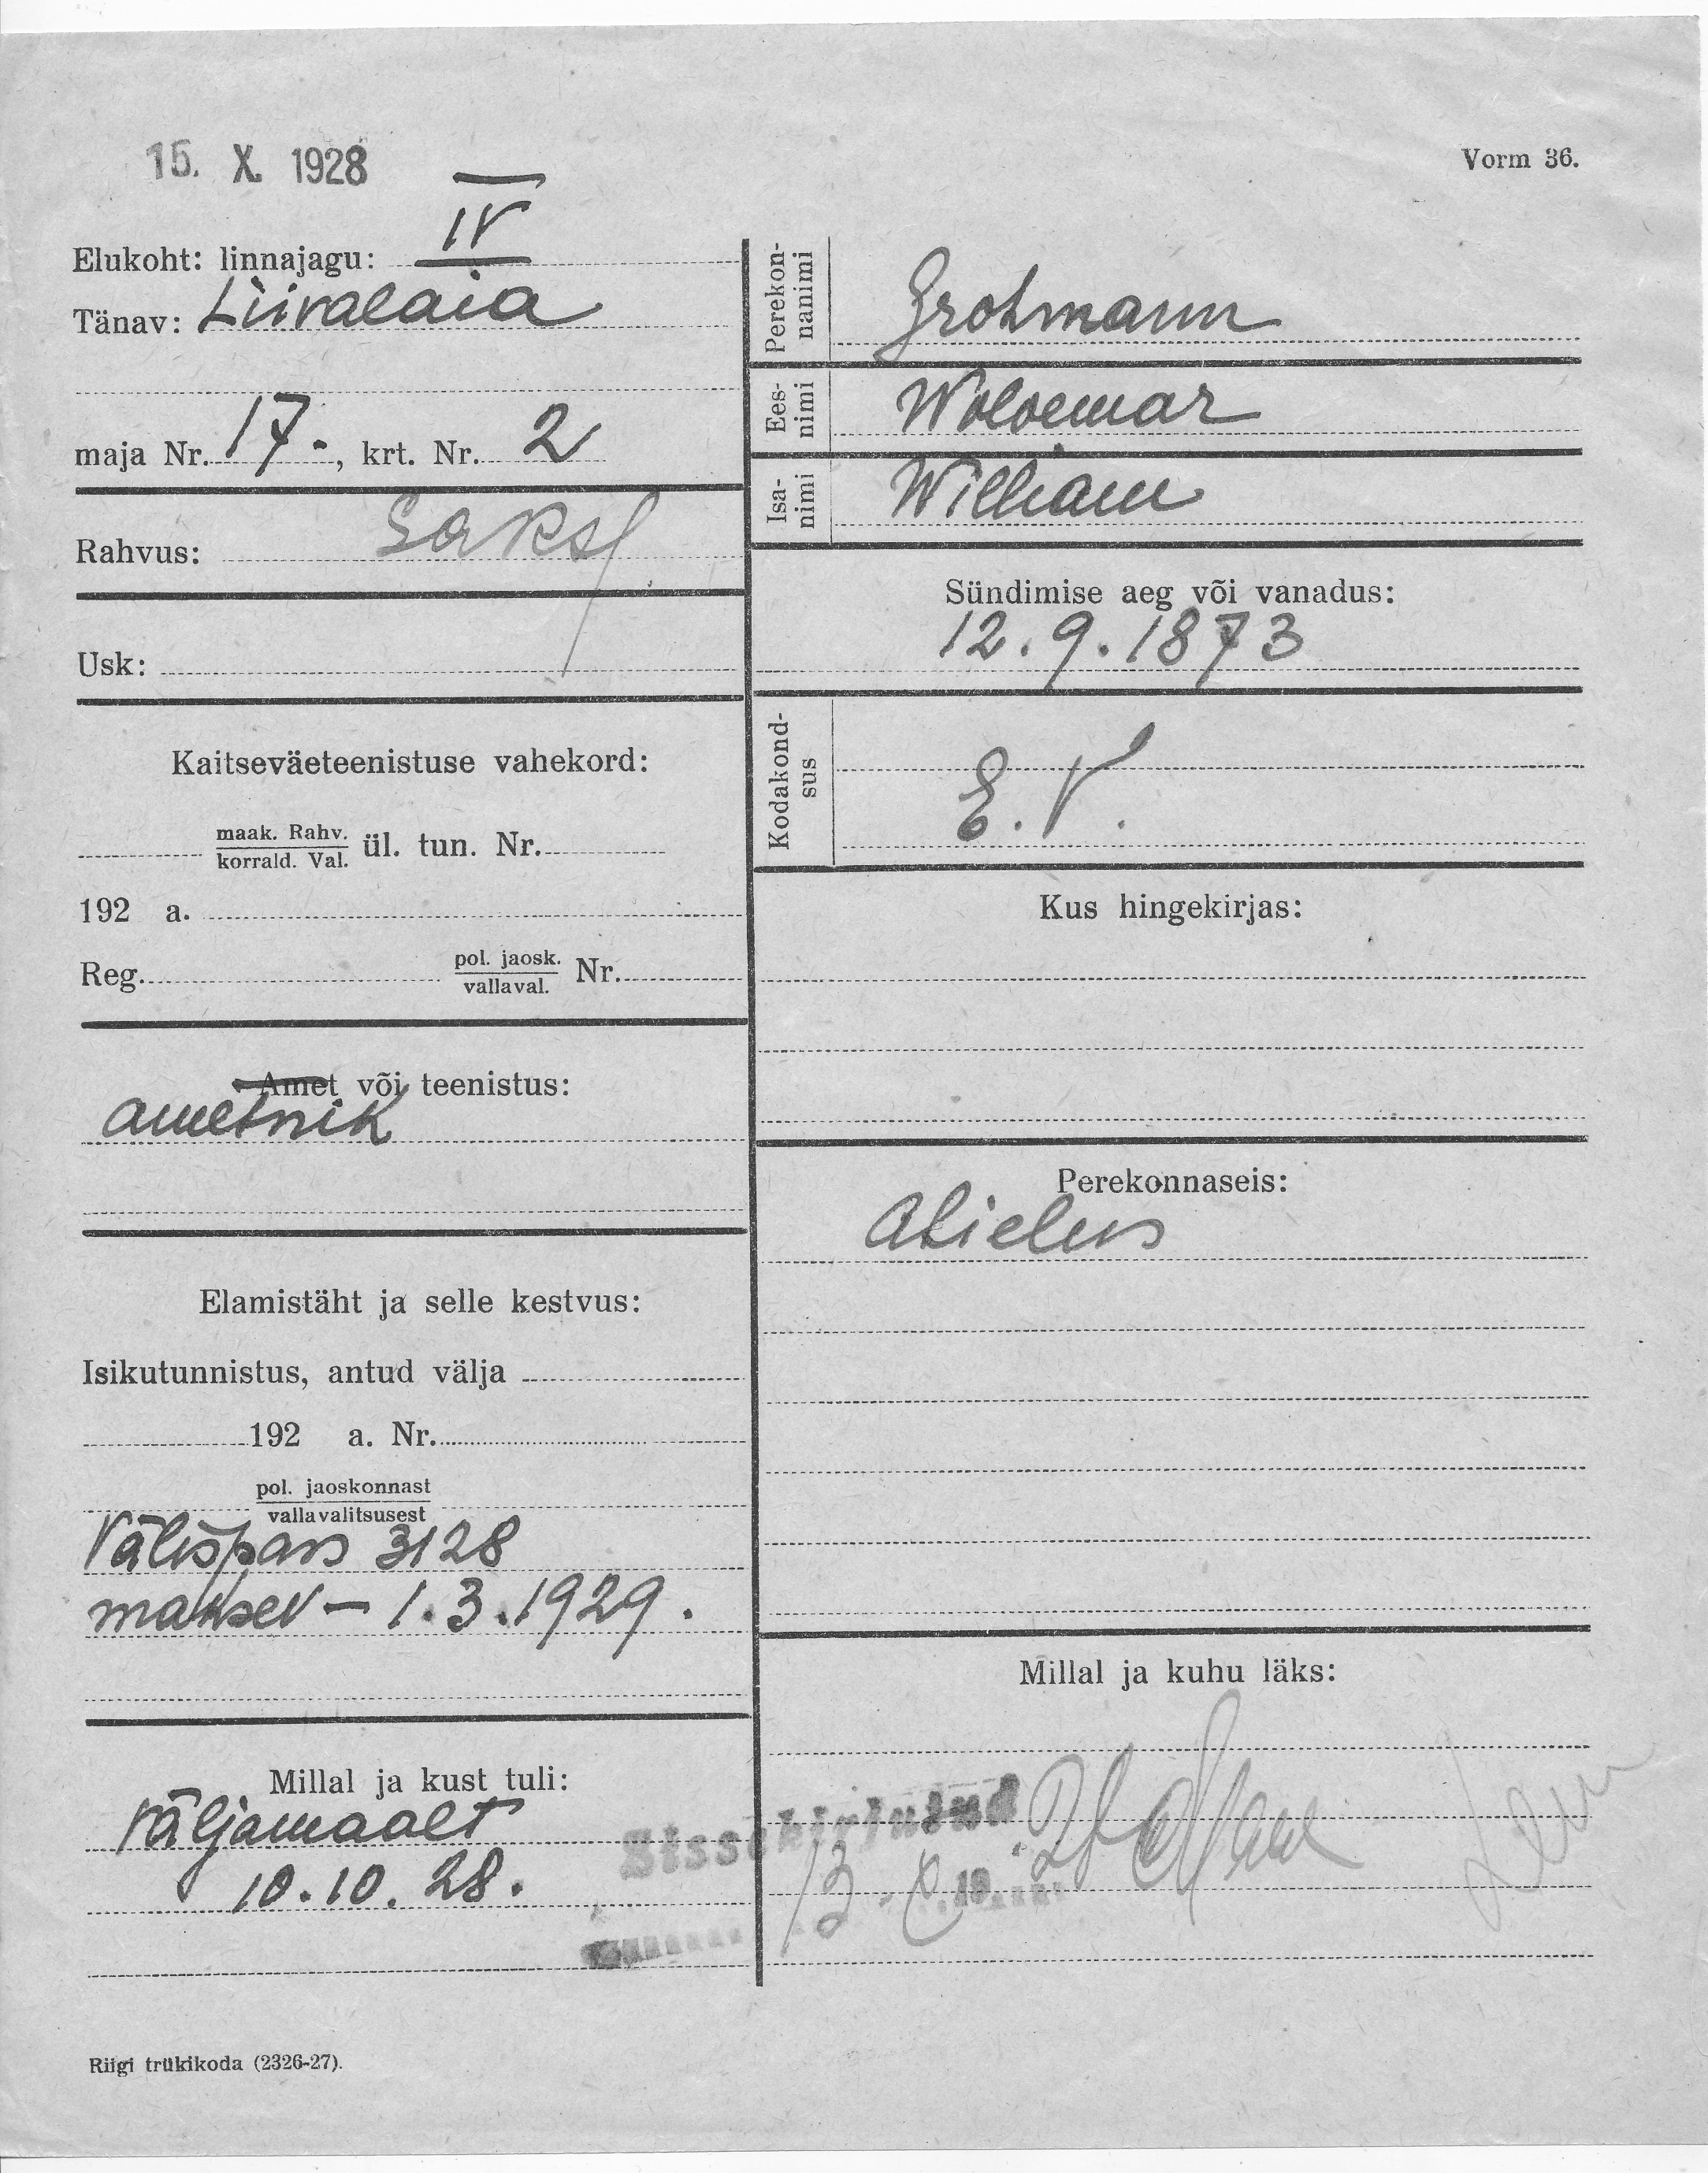 15. X. 1928
Vorm 36.
Elukoht: linnajagu: IV
Tänav: Liivalaia
maja Nr. 17-, krt. Nr. 2
Rahvus: Saksl
Usk:
Kaitseväeteenistuse vahekord:
maak. Rahv.
korrald. Val.
ül. tun. Nr.
192 a.
Reg. pol. jaosk.
vallaval.
Nr.
Amet või teenistus:
ametnik
Elamistäht ja selle kestvus:
Isikutunnistus, antud välja
192 a. Nr.
pol. jaoskonnast
vallavalitsusest
Välispass 3128
maksev - 1.3.1929.
Millal ja kust tuli:
Väljamaalt
10.10.28.
Perekon-
nanimi
Grohmann
Ees-
nimi
Woldemar
Isa-
nimi
William
Sündimise aeg või vanadus:
12.9.1873
Kodakond-
sus
E.V.
Kus hingekirjas:
Perekonnaseis:
abielus
Millal ja kuhu läks:
Sissekirjutud
13. X. 19
Riigi trükikoda (2326-27).